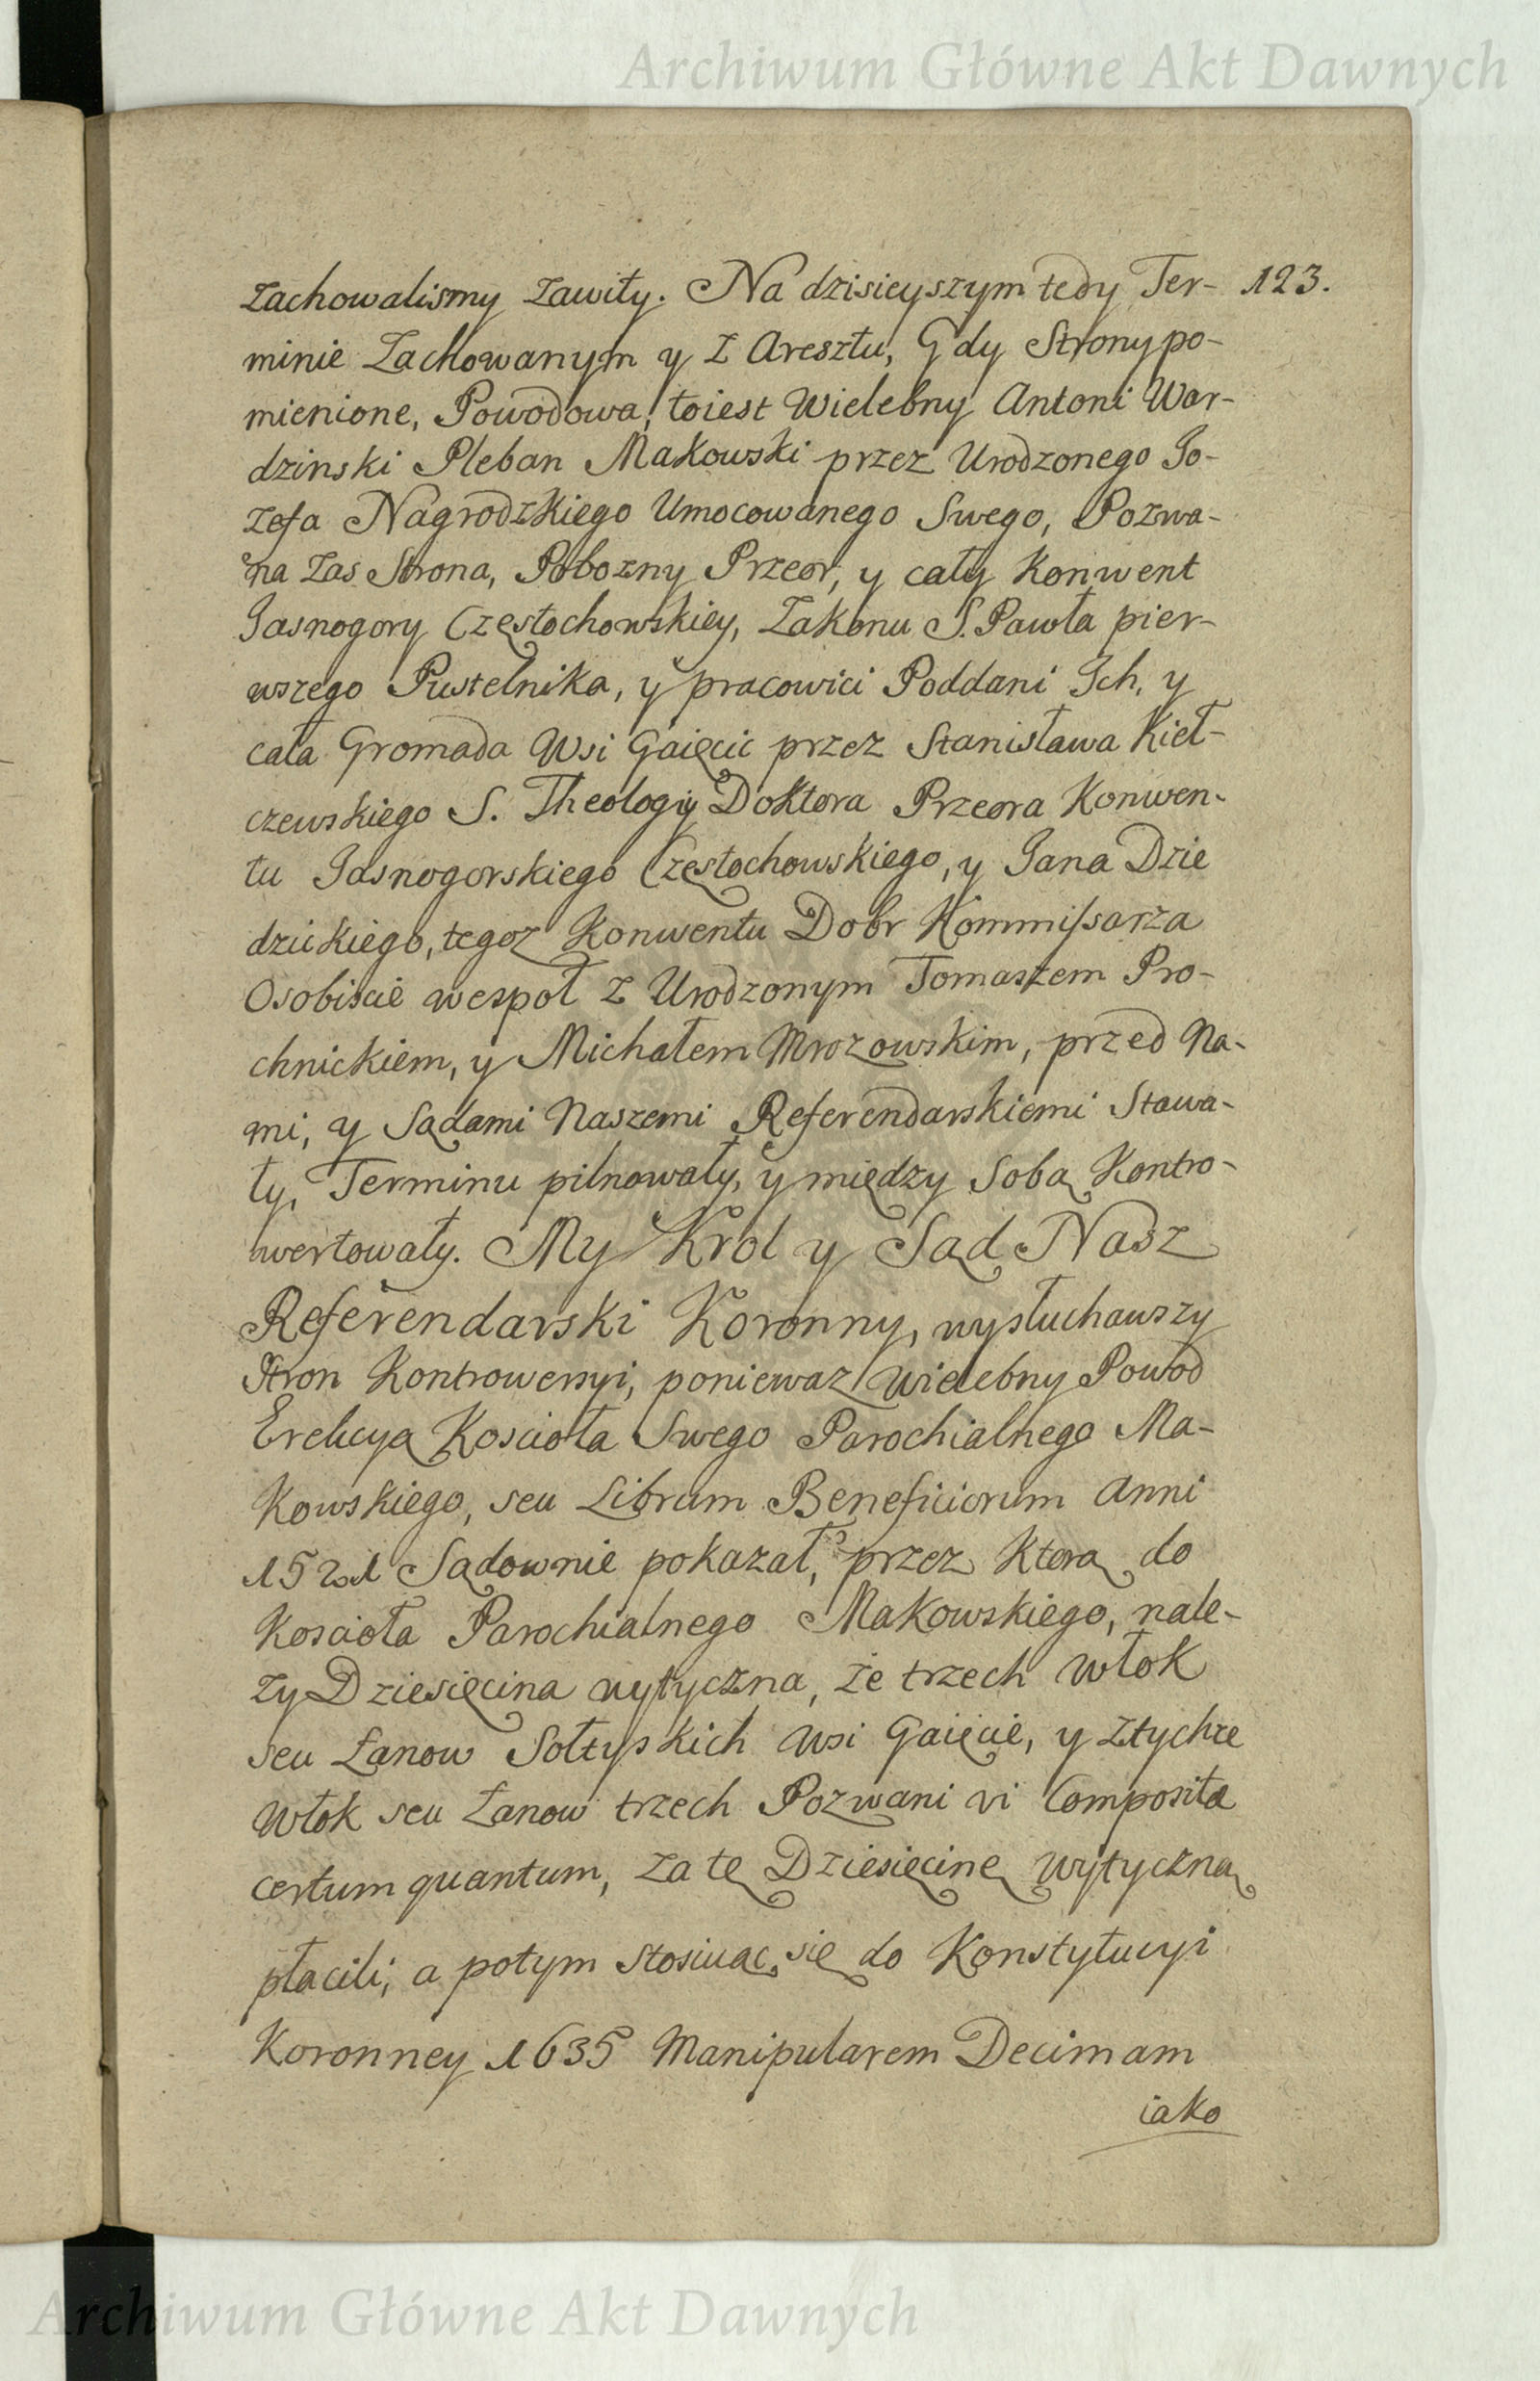 Archiwum Główne Akt Dawnych
Zachowalismy Zawiły. Na dzisieyszym tedy Ter- 123.
minie Zachowanym y z Aresztu, Gdy Strony po-
mienione, Powodowa, toiest Wielebny Antoni War-
dzinski Pleban Makowski przez Urodzonego Jo-
zefa Nagrodzkiego Umocowanego Swego, Pozwa-
na Zas Strona, Pobozny Przeor, y cały Konwent
Jasnogory Częstochowskiey, Zakonu S. Pawła pier-
wszego Pustelnika, y pracowici Poddani Ich, y
cała Gromada Wsi Gaięcic przez Stanisława Kieł-
czewskiego S. Theologij Doktora Przeora Konwen-
tu Jasnogorskiego Częstochowskiego, y Jana Dzie
dzickiego, tegoz Konwentu Dobr Kommissarza
Osobiscie wespoł z Urodzonym Tomaszem Pro-
chnickiem, y Michałem Mrozowskim, przed Na-
mi, y Sądami Naszemi Referendarskiemi Stawa-
ły, Terminu pilnowały, y między Sobą Kontro-
wertowały. My Krol y Sąd Nasz
Referendarski Koronny, wysłuchawszy
Stron Kontrowersyi, poniewaz Wielebny Powod
Erekcyą Koscioła Swego Parochialnego Ma-
Kowskiego, seu Librum Beneficiorum Anni
1521 Sądownie pokazał, przez Ktorą do
Koscioła Parochialnego Makowskiego, nale-
zy Dziesięcina wytyczna, ze trzech włok
seu Łanow Sołtyskich Wsi Gaięcic, y z tychze
Włok seu Łanow trzech Pozwani vi Composita
certum quantum, za tę Dziesięcinę wytyczną
płacili, a potym stosuiąc się do Konstytucyi
Koronney 1635 Manipularem Decimam
iako
Archiwum Główne Akt Dawnych